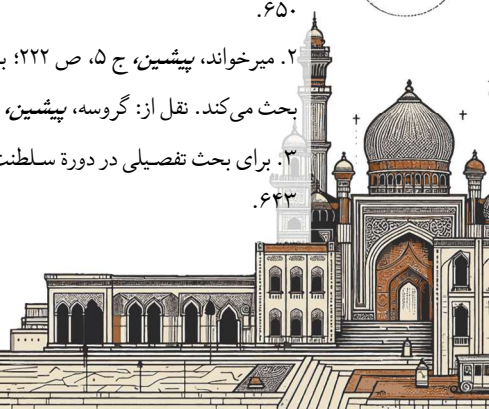 ۶۵۰.
۲. میرخواند، پیشین، ج ۵، ص ۲۲۲؛
بحث می‌کند. نقل از: گروسه، پیشین،
۳. برای بحث تفصیلی در دورة سلطنت
۶۴۳.